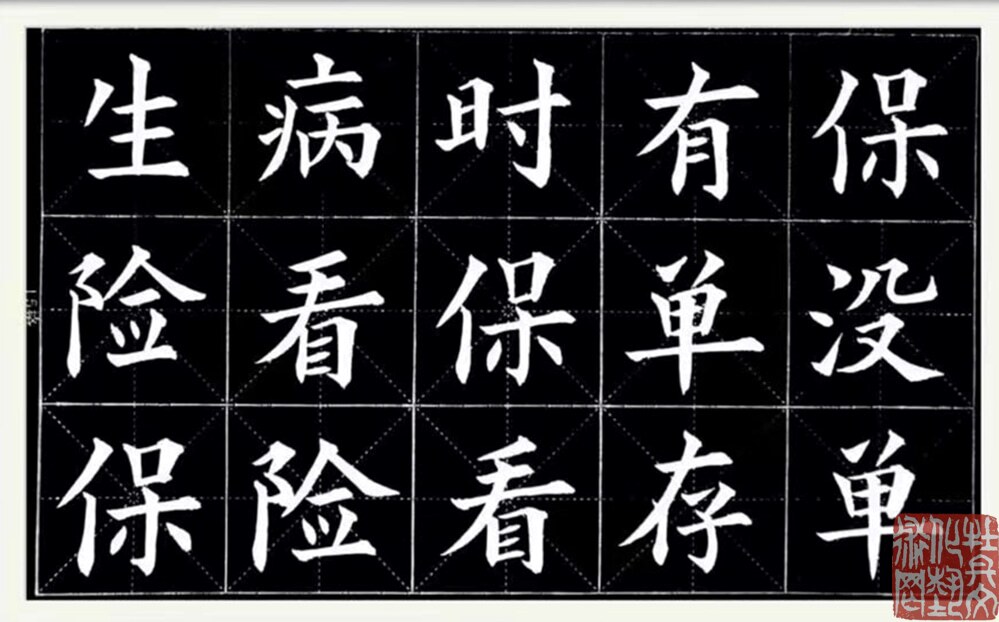 生病时有保
险看保单没
保险看存单